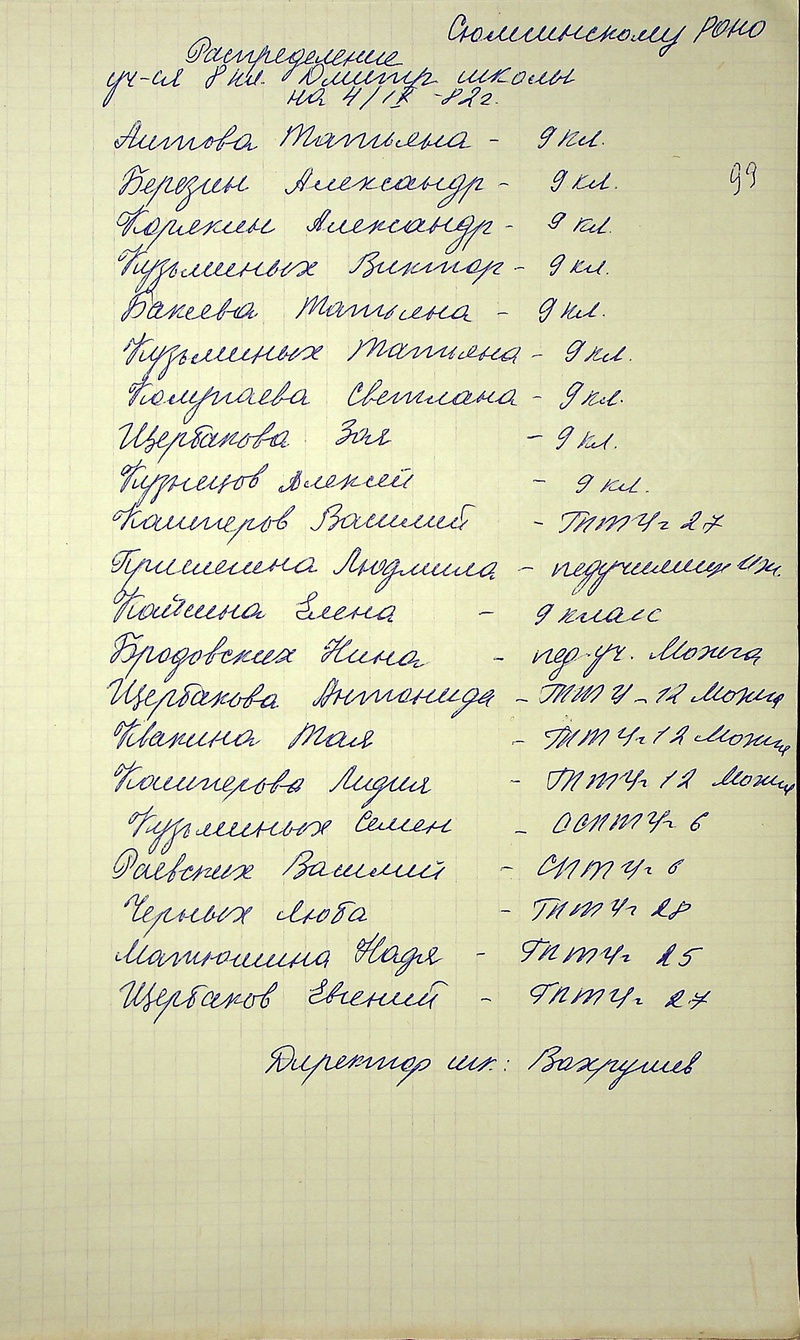 Сюмсинскому РОНО
Распределение
уч-ся 8 кл. Дмитр школы
на 4/IX -82г.
99
Аитова Татьяна - 9 кл.
Березин Александр - 9 кл.
Корякин Александр - 9 кл.
Кузьминых Виктор - 9 кл.
Бакеева Татьяна - 9 кл.
Кузьминых Татьяна - 9 кл.
Колупаева Светлана - 9 кл.
Щербакова Зоя - 9 кл.
Кузнецов Алексей - 9 кл.
Кашперов Василий - ГПТУ-27
Людмила - педучилище Иж.
Кайсина Елена - 9 класс
Бродовских Нина - пед.уч. Можга
Щербакова Антонида - ТПТУ-12 Можга
Квакина Тая - ТПТУ-12 Можга
Кашперова Лидия - ГПТУ-12 Можга
Кузьминых Семен - ССПТУ-6
Раевских Василий - СПТУ-6
Черных Люба - ГПТУ-28
Матюшина Надя - ГПТУ-25
Щербаков Евгений - ГПТУ-27
Директор шк.: Вахрушев